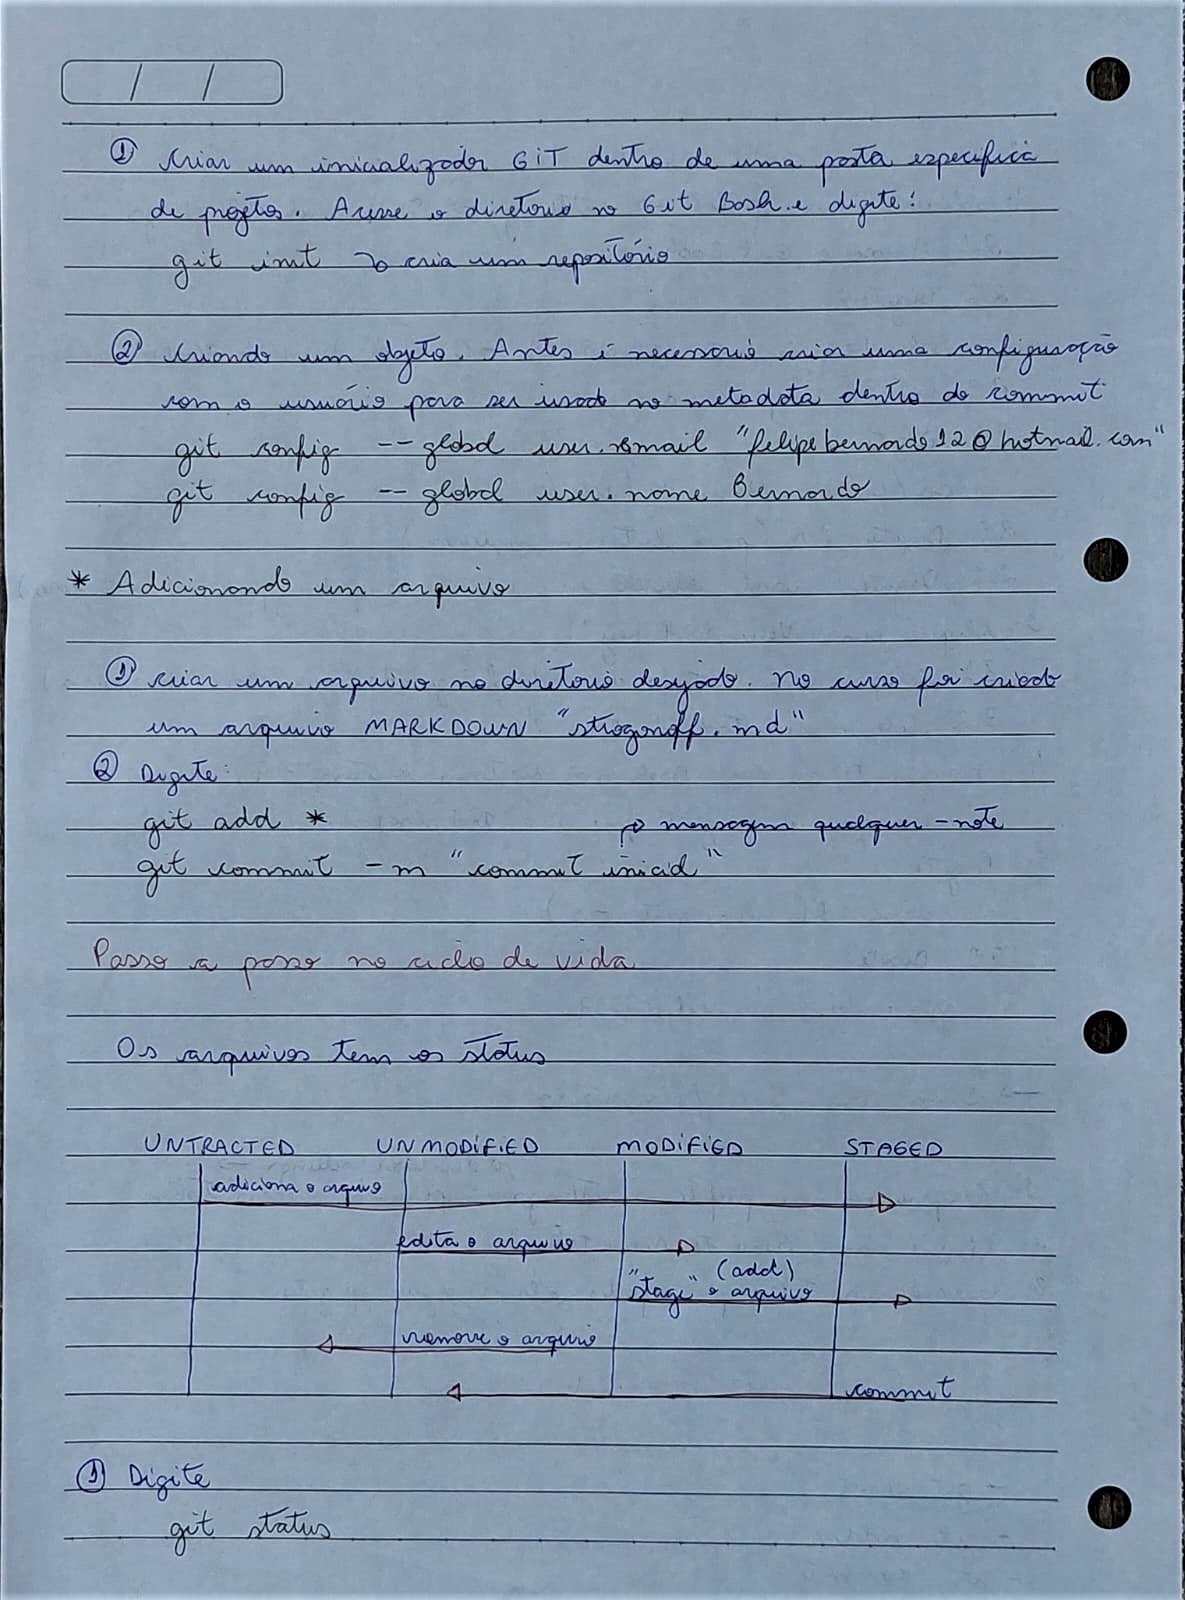 / /
① Criar um inicializador GIT dentro de uma pasta especifica
de projetos. Acesse o diretorio no Git Bash e digite:
git init → cria um repositório
② Criando um objeto. Antes é necessario criar uma configuração
com o usuário para ser usado no metadata dentro do commit
git config -- global user.email "felipebernardo12@hotmail.com"
git config -- global user.name Bernardo
* Adicionando um arquivo
① criar um arquivo no diretorio desejado. No curso foi criado
um arquivo MARKDOWN "strogonoff.md"
② Digite:
git add *
→ mensagem qualquer - note
git commit -m "commit inicial"
Passo a passo no ciclo de vida
Os arquivos tem os status
UNTRACTED UNMODIFIED MODIFIED STAGED
adiciona o arquivo
edita o arquivo
"stage" o arquivo (add)
remove o arquivo
commit
① Digite
git status